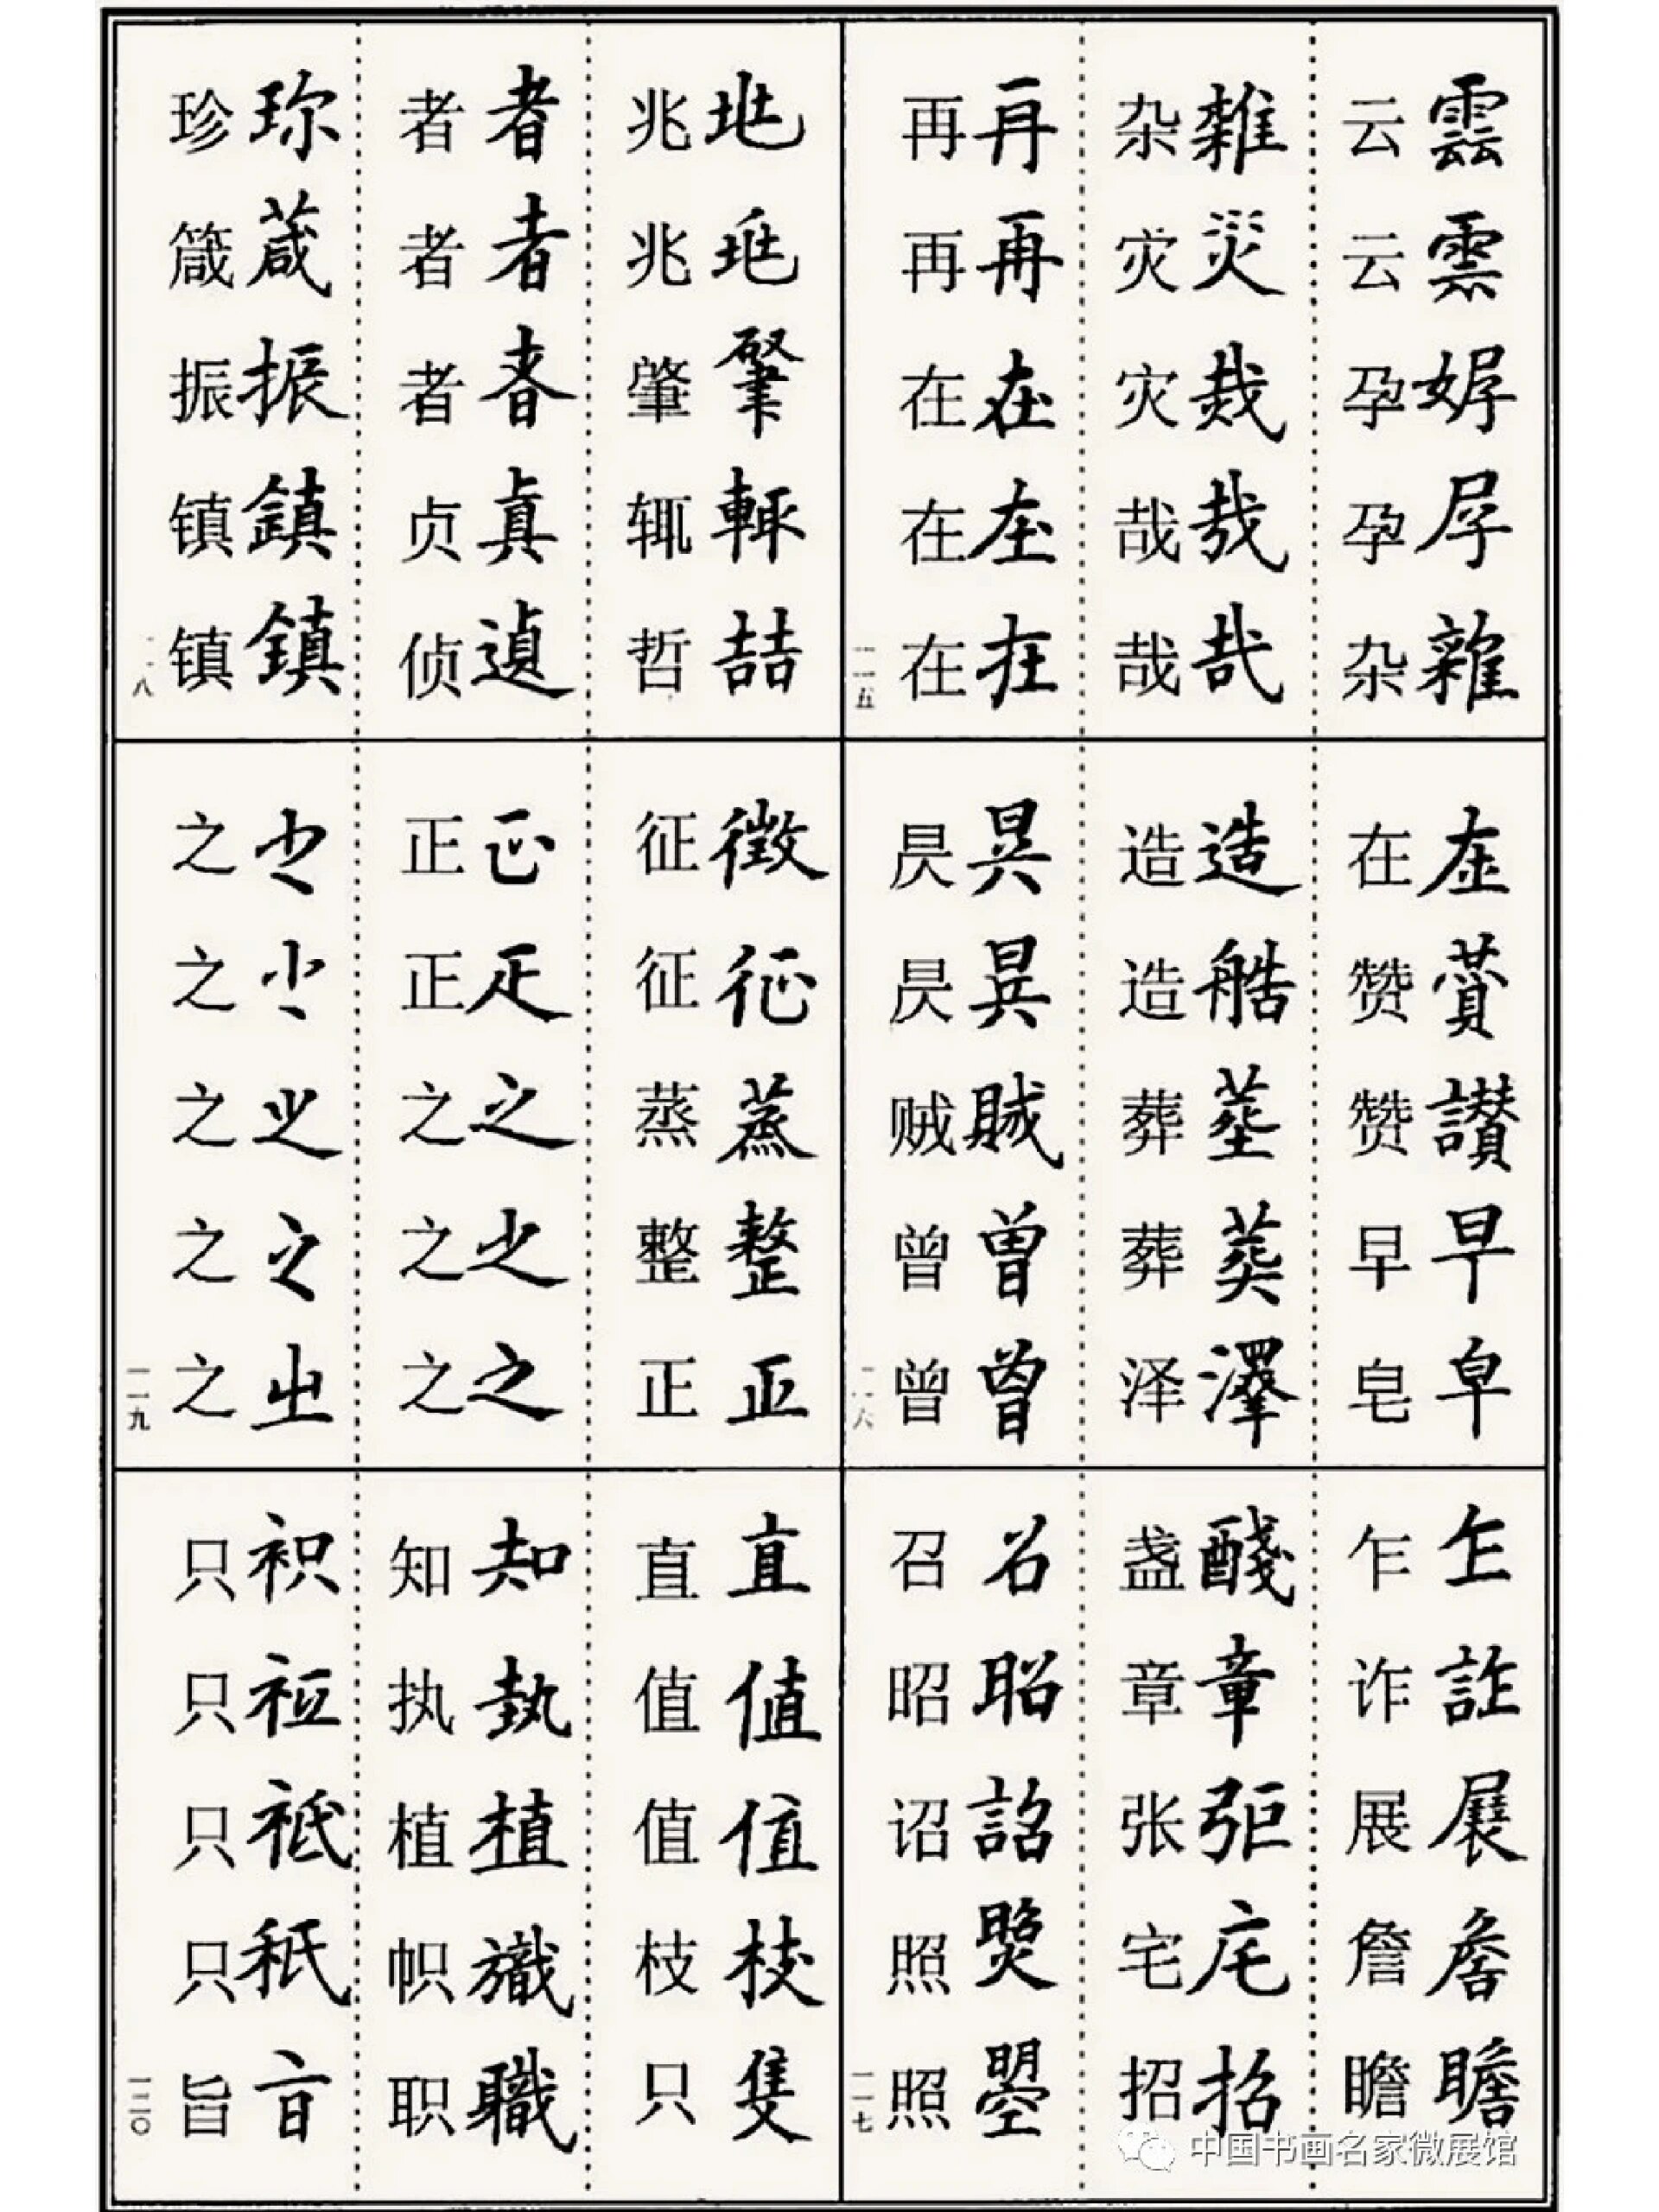 雲雲雜
云云孕孕杂
雜災哉哉
杂灾灾哉哉
再再在在在
再再在在在
一一五
在讚早皁
在赞赞早皂
造艁葬澤
造造葬葬泽
曾曾
昃昃贼曾曾
一一六
乍詐展詹瞻
乍诈展詹瞻
醆章宅招
盏章张宅招
召詔曌
召昭诏照照
一一七
輒喆
兆兆肇辄哲
者者者真遉
者者者贞侦
珎葴振鎮鎮
珍箴振镇镇
一一八
徵征蒸整正
征征蒸整正
正正之之之
正正之之之
之之之之㞢
之之之之之
一一九
直值值枝隻
直值值枝只
知執植職
知执植帜职
祇秖
只只只只旨
一二〇
中国书画名家微展馆